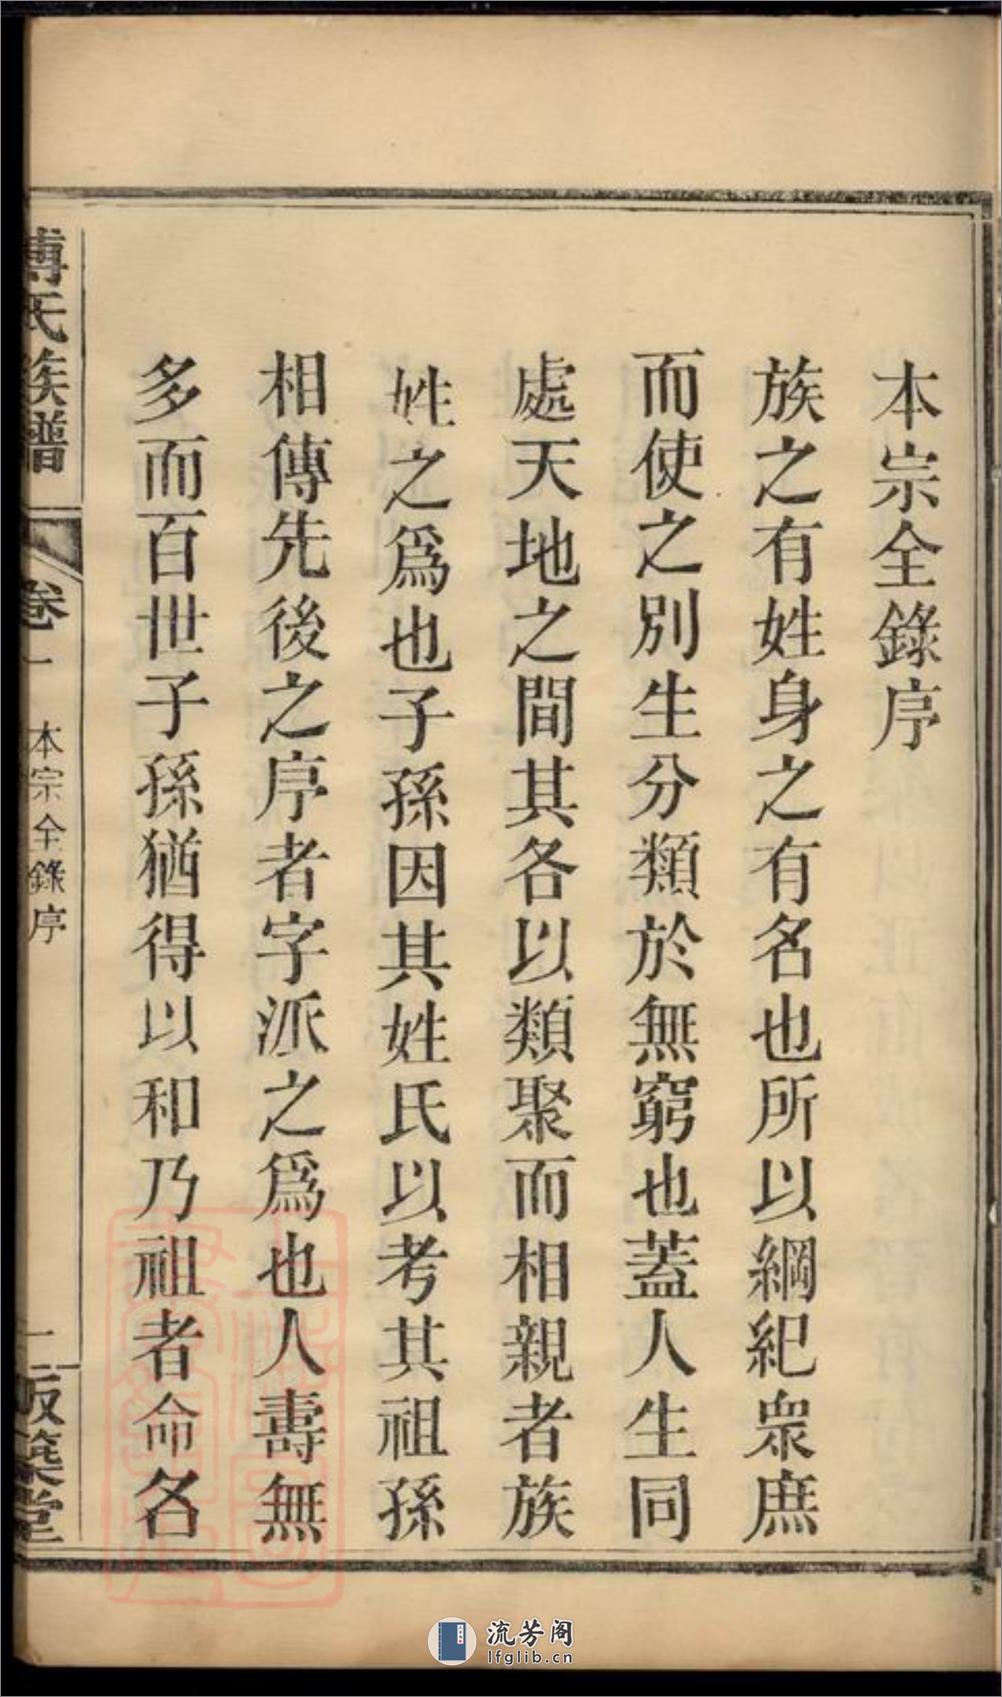 本宗全錄序
族之有姓身之有名也所以綱紀衆庶
而使之別生分類於無窮也蓋人生同
處天地之間其各以類聚而相親者族
姓之爲也子孫因其姓氏以考其祖孫
相傳先後之序者字派之爲也人壽無
多而百世子孫猶得以和乃祖者命名
傅氏族譜
卷一
本宗全錄序
一
版築堂
流芳阁
lfglib.cn